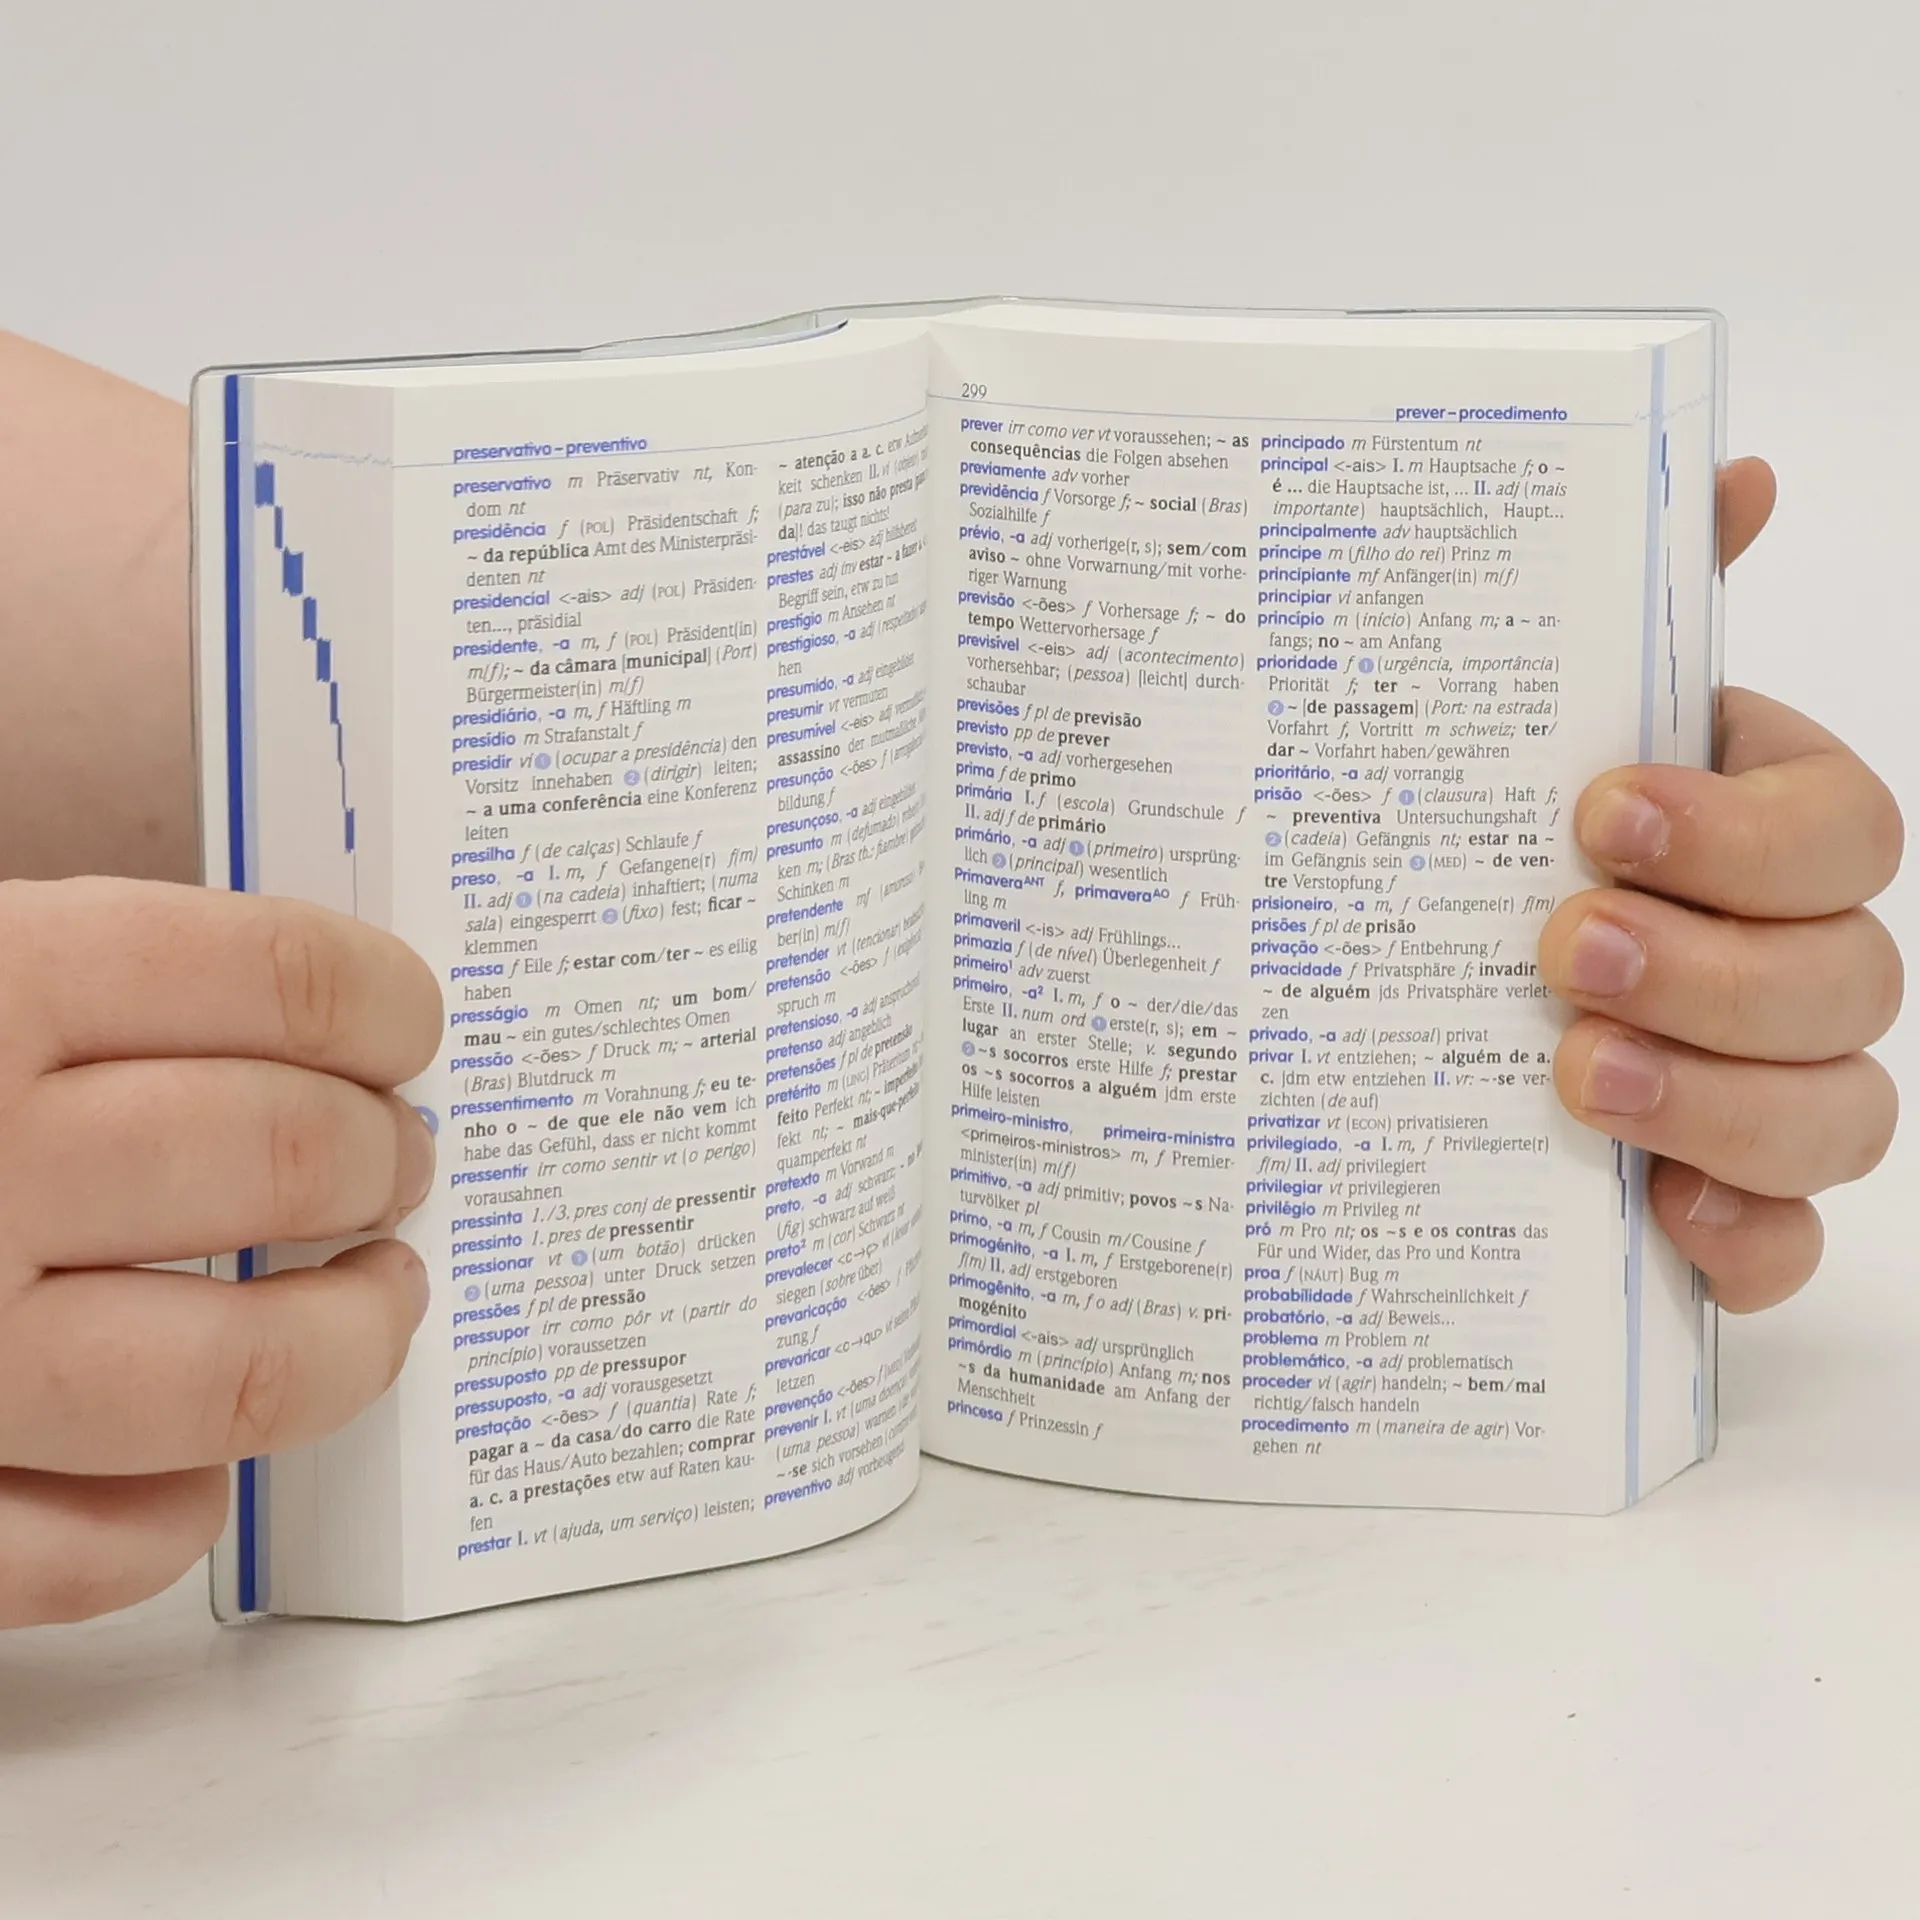 preservativo – preventivo
preservativo m Präservativ nt, Kon-
dom nt
presidência f (POL) Präsidentschaft f;
~ da república Amt des Ministerpräsi-
denten nt
presidencial <-ais> adj (POL) Präsiden-
ten..., präsidial
presidente, -a m, f (POL) Präsident(in)
m(f); ~ da câmara [municipal] (Port)
Bürgermeister(in) m(f)
presidiário, -a m, f Häftling m
presídio m Strafanstalt f
presidir vi ❶ (ocupar a presidência) den
Vorsitz innehaben ❷ (dirigir) leiten;
~ a uma conferência eine Konferenz
leiten
presilha f (de calças) Schlaufe f
preso, -a I. m, f Gefangene(r) f(m)
II. adj ❶ (na cadeia) inhaftiert; (numa
sala) eingesperrt ❷ (fixo) fest; ficar ~
klemmen
pressa f Eile f; estar com/ter ~ es eilig
haben
presságio m Omen nt; um bom/
mau ~ ein gutes/schlechtes Omen
pressão <-ões> f Druck m; ~ arterial
(Bras) Blutdruck m
pressentimento m Vorahnung f; eu te-
nho o ~ de que ele não vem ich
habe das Gefühl, dass er nicht kommt
pressentir irr como sentir vt (o perigo)
vorausahnen
pressinta 1./3. pres conj de pressentir
pressinto 1. pres de pressentir
pressionar vt ❶ (um botão) drücken
❷ (uma pessoa) unter Druck setzen
pressões f pl de pressão
pressupor irr como pôr vt (partir do
princípio) voraussetzen
pressuposto pp de pressupor
pressuposto, -a adj vorausgesetzt
prestação <-ões> f (quantia) Rate f;
pagar a ~ da casa/do carro die Rate
für das Haus/Auto bezahlen; comprar
a. c. a prestações etw auf Raten kau-
fen
prestar I. vt (ajuda, um serviço) leisten;
~ atenção a a. c. etw
keit schenken II. vi
(para zu); isso não presta
da]! das taugt nichts!
prestável <-eis> adj hilfsbereit
prestes adj inv estar ~ a fazer a. c.
Begriff sein, etw zu tun
prestígio m Ansehen nt
prestigioso, -a adj
hen
presumido, -a adj eingebildet
presumir vt vermuten
presumível <-eis> adj
assassino der mutmaßliche
presunção <-ões> f
bildung f
presunçoso, -a adj eingebildet
presunto m (defumado)
ken m; (Bras tb.: fiambre)
Schinken m
pretendente mf
ber(in) m(f)
pretender vt (tencionar)
pretensão <-ões> f
spruch m
pretensioso, -a adj
pretenso adj angeblich
pretensões f pl de pretensão
pretérito m (LING) Präteritum
feito Perfekt nt; ~
fekt nt; ~ mais-que-perfeito
quamperfekt nt
pretexto m Vorwand m
preto, -a adj schwarz;
(fig) schwarz auf weiß
preto² m (cor) Schwarz nt
prevalecer <c→ç> vi
siegen (sobre über)
prevaricação <-ões> f
zung f
prevaricar <c→qu> vi
letzen
prevenção <-ões> f
prevenir I. vt (uma doença)
(uma pessoa) warnen
~-se sich vorsehen
preventivo adj vorbeugend
299
prever – procedimento
prever irr como ver vt voraussehen; ~ as
consequências die Folgen absehen
previamente adv vorher
previdência f Vorsorge f; ~ social (Bras)
Sozialhilfe f
prévio, -a adj vorherige(r, s); sem/com
aviso ~ ohne Vorwarnung/mit vorhe-
riger Warnung
previsão <-ões> f Vorhersage f; ~ do
tempo Wettervorhersage f
previsível <-eis> adj (acontecimento)
vorhersehbar; (pessoa) [leicht] durch-
schaubar
previsões f pl de previsão
previsto pp de prever
previsto, -a adj vorhergesehen
prima f de primo
primária I. f (escola) Grundschule f
II. adj f de primário
primário, -a adj ❶ (primeiro) ursprüng-
lich ❷ (principal) wesentlich
Primavera ANT f, primavera AO f Früh-
ling m
primaveril <-is> adj Frühlings...
primazia f (de nível) Überlegenheit f
primeiro¹ adv zuerst
primeiro, -a² I. m, f o ~ der/die/das
Erste II. num ord ❶ erste(r, s); em ~
lugar an erster Stelle; v. segundo
❷ ~s socorros erste Hilfe f; prestar
os ~s socorros a alguém jdm erste
Hilfe leisten
primeiro-ministro, primeira-ministra
<primeiros-ministros> m, f Premier-
minister(in) m(f)
primitivo, -a adj primitiv; povos ~s Na-
turvölker pl
primo, -a m, f Cousin m/Cousine f
primogénito, -a I. m, f Erstgeborene(r)
f(m) II. adj erstgeboren
primogênito, -a m, f o adj (Bras) v. pri-
mogénito
primordial <-ais> adj ursprünglich
primórdio m (princípio) Anfang m; nos
~s da humanidade am Anfang der
Menschheit
princesa f Prinzessin f
principado m Fürstentum nt
principal <-ais> I. m Hauptsache f; o ~
é ... die Hauptsache ist, ... II. adj (mais
importante) hauptsächlich, Haupt...
principalmente adv hauptsächlich
príncipe m (filho do rei) Prinz m
principiante mf Anfänger(in) m(f)
principiar vi anfangen
princípio m (início) Anfang m; a ~ an-
fangs; no ~ am Anfang
prioridade f ❶ (urgência, importância)
Priorität f; ter ~ Vorrang haben
❷ ~ [de passagem] (Port: na estrada)
Vorfahrt f, Vortritt m schweiz; ter/
dar ~ Vorfahrt haben/gewähren
prioritário, -a adj vorrangig
prisão <-ões> f ❶ (clausura) Haft f;
~ preventiva Untersuchungshaft f
❷ (cadeia) Gefängnis nt; estar na ~
im Gefängnis sein ❸ (MED) ~ de ven-
tre Verstopfung f
prisioneiro, -a m, f Gefangene(r) f(m)
prisões f pl de prisão
privação <-ões> f Entbehrung f
privacidade f Privatsphäre f; invadir
~ de alguém jds Privatsphäre verlet-
zen
privado, -a adj (pessoal) privat
privar I. vt entziehen; ~ alguém de a.
c. jdm etw entziehen II. vr: ~-se ver-
zichten (de auf)
privatizar vt (ECON) privatisieren
privilegiado, -a I. m, f Privilegierte(r)
f(m) II. adj privilegiert
privilegiar vt privilegieren
privilégio m Privileg nt
pró m Pro nt; os ~s e os contras das
Für und Wider, das Pro und Kontra
proa f (NÁUT) Bug m
probabilidade f Wahrscheinlichkeit f
probatório, -a adj Beweis...
problema m Problem nt
problemático, -a adj problematisch
proceder vi (agir) handeln; ~ bem/mal
richtig/falsch handeln
procedimento m (maneira de agir) Vor-
gehen nt